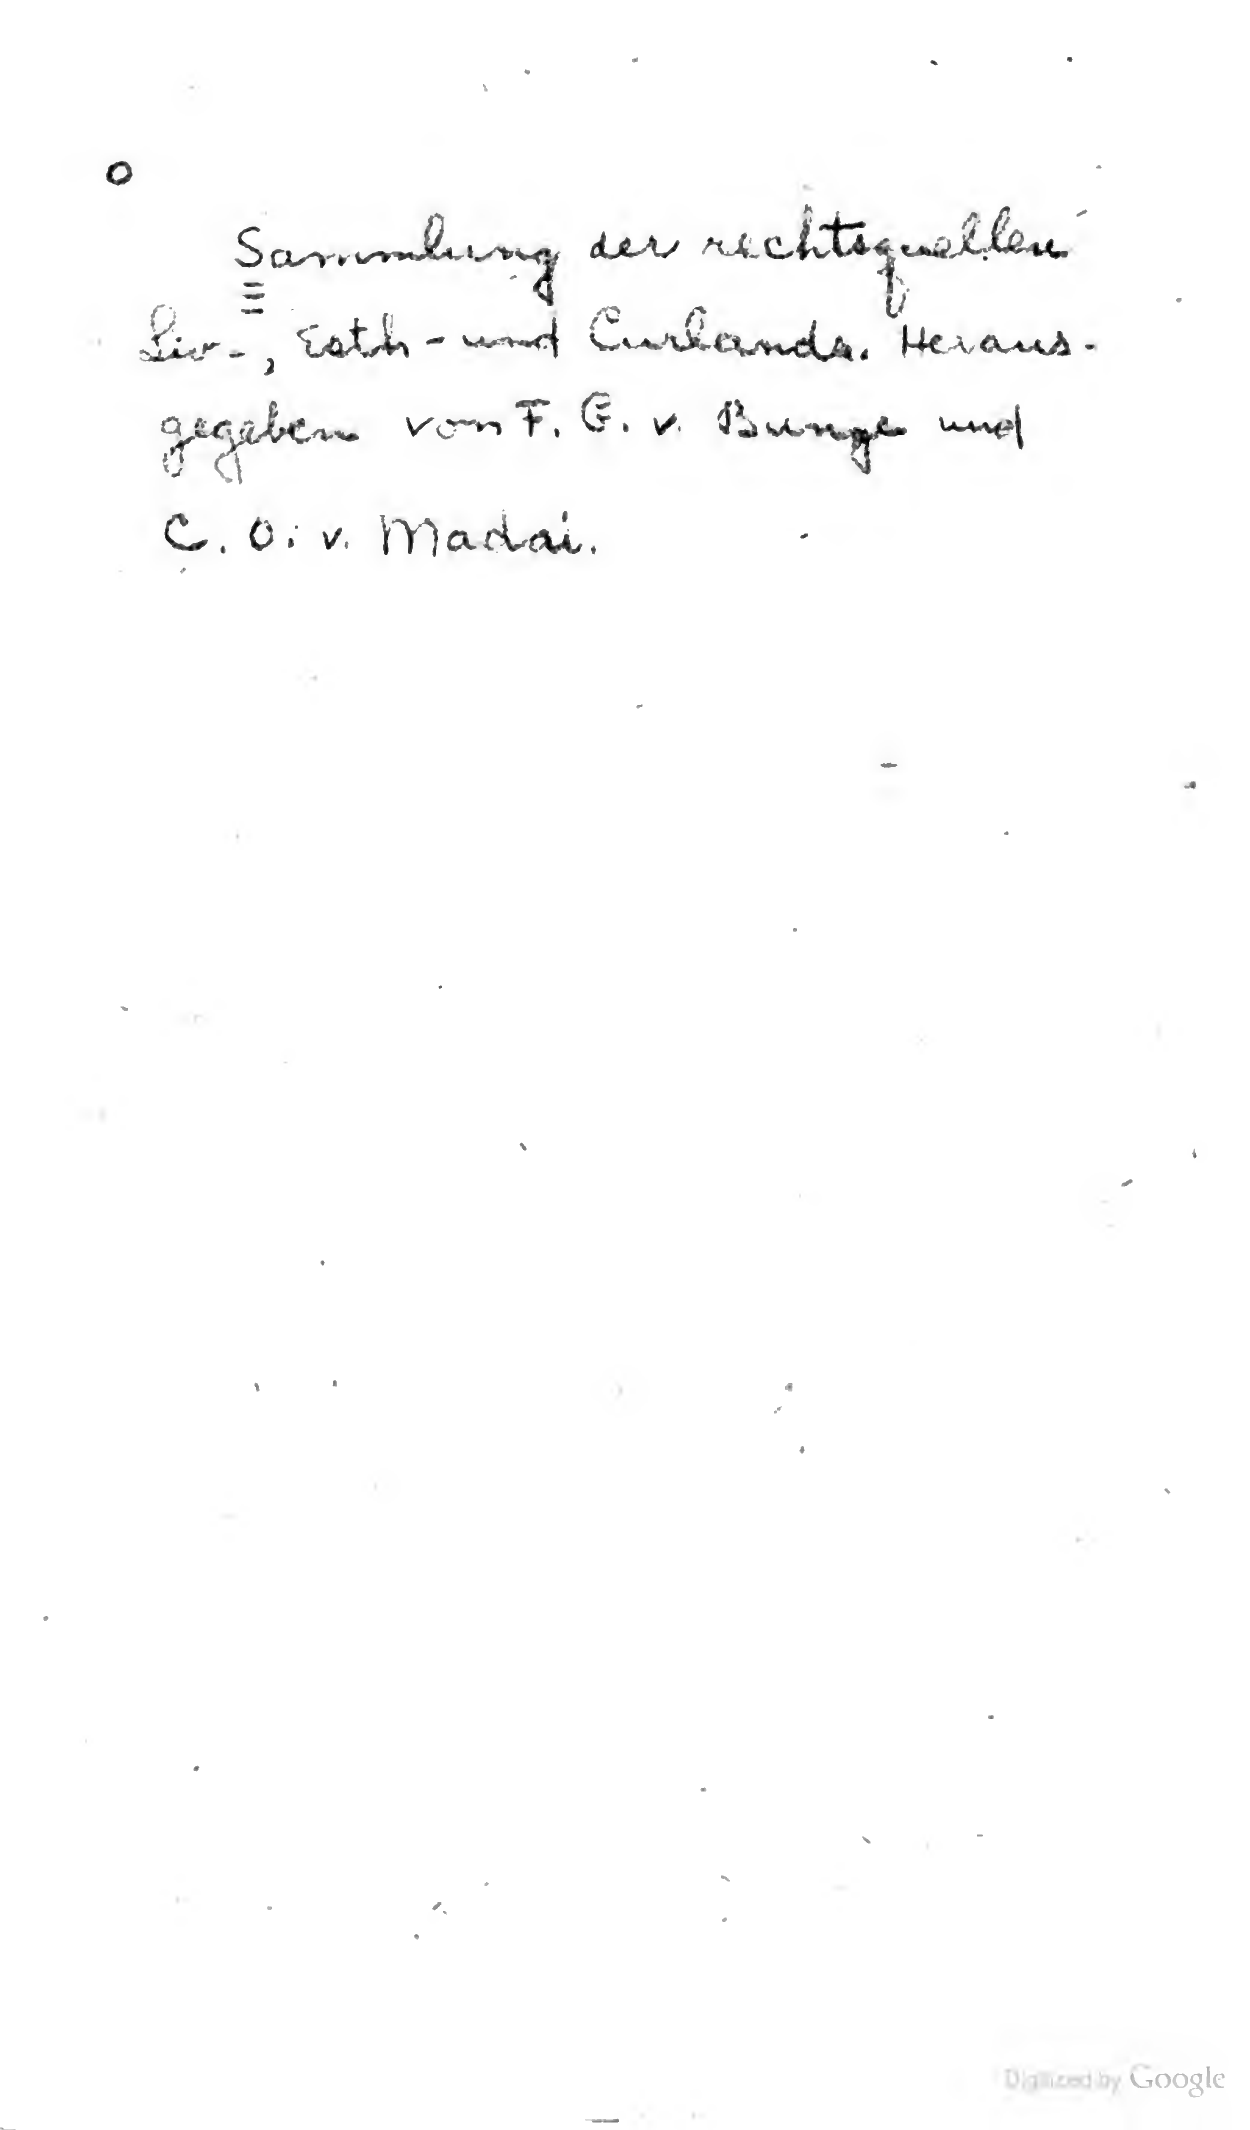 o
Sammlung der rechtsquellen
Liv-, Esth- und Curlands. Heraus-
gegeben von F. G. v. Bunge und
C. O. v. Madai.
Digitized by Google